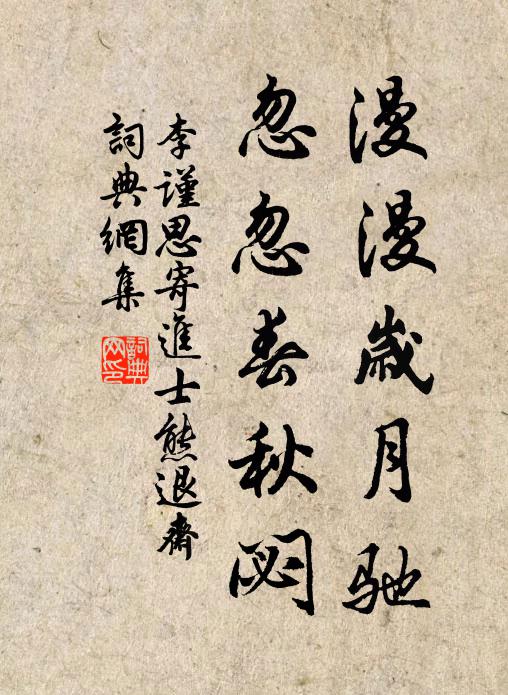 漫漫歲月馳
忽忽春秋閟
李謹思寄進士熊退齋
詞典網集
詞典网印